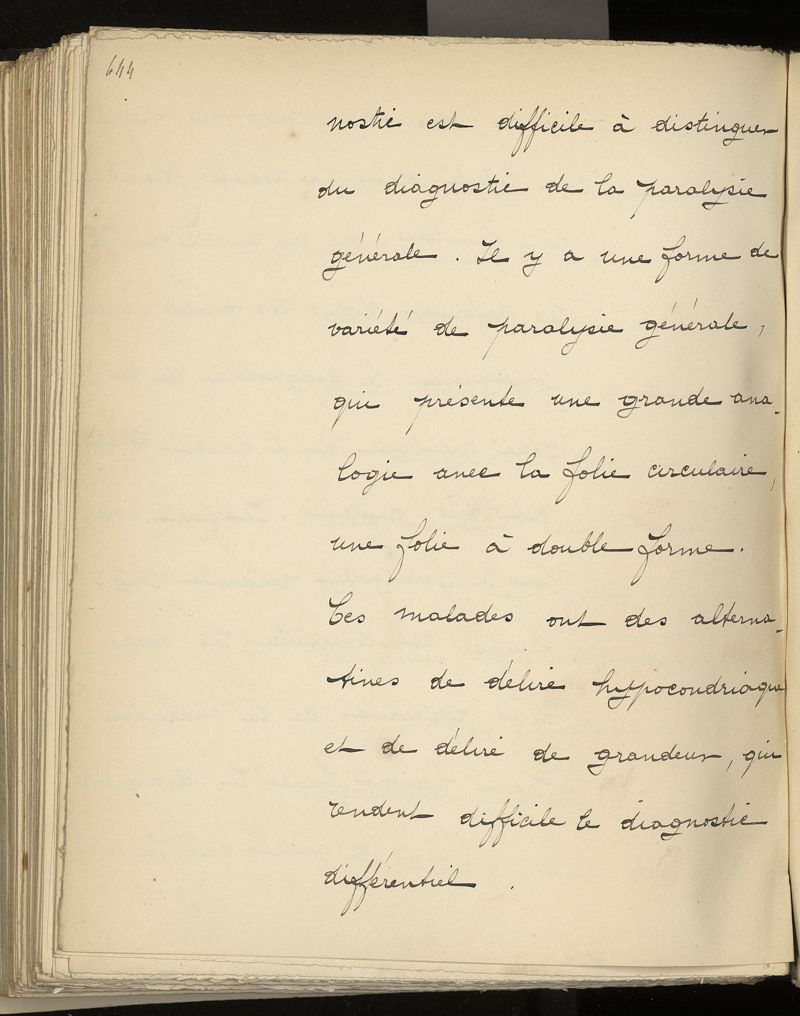 644
nostic est difficile à distinguer
du diagnostic de la paralysie
générale. Il y a une forme de
variété de paralysie générale,
qui présente une grande ana-
logie avec la folie circulaire,
une folie à double forme.
Ces malades ont des alterna-
tives de délire hypocondriaque
et de délire de grandeur, qui
rendent difficile le diagnostic
différentiel.